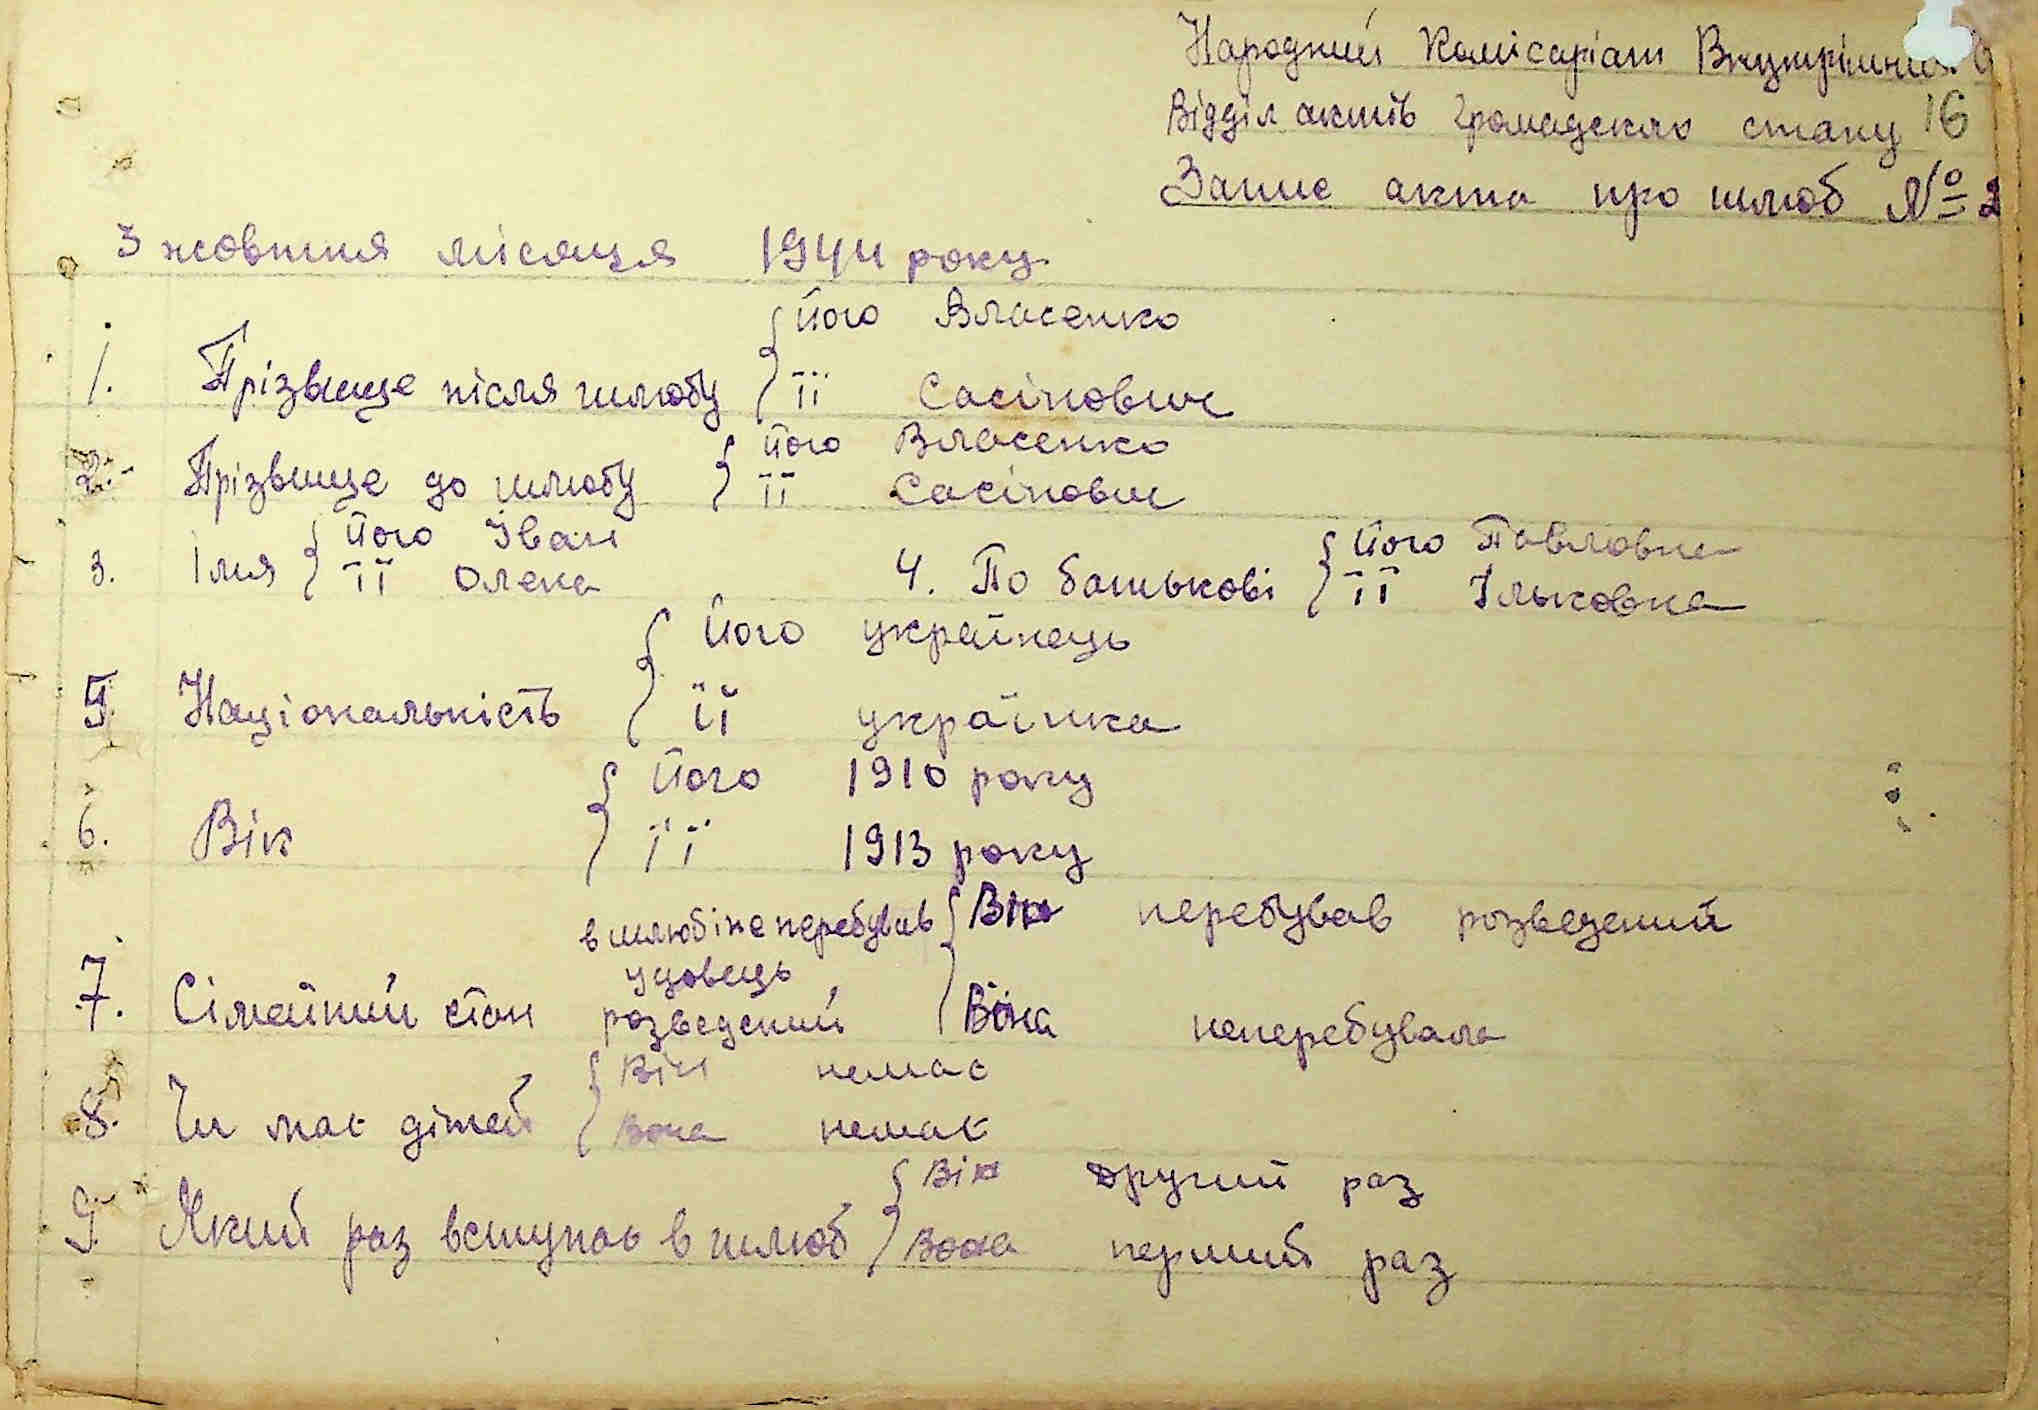 Народний Комісаріат Внутрішніх
Відділ актів громадскго стану 16
Запис акта про шлюб № 2
3 жовтня місяця 1944 року
Його Власенко
1. Прізвище після шлюбу { її Сосінович
Його Власенко
2. Прізвище до шлюбу { її Сосінович
3. Імя { Його Іван 4. По батькові { Його Павловне
її Олена її Ільковна
Його українець
5. Національність { її українка
Його 1910 року
6. Вік { її 1913 року
в шлюбі не перебував { Він перебував розведений
удовець
7. Сімейний стан розведений Вона неперебувала
{ Він немає
8. Чи має дітей Вона немає
{ Він другий раз
9. Який раз вступає в шлюб Вона перший раз